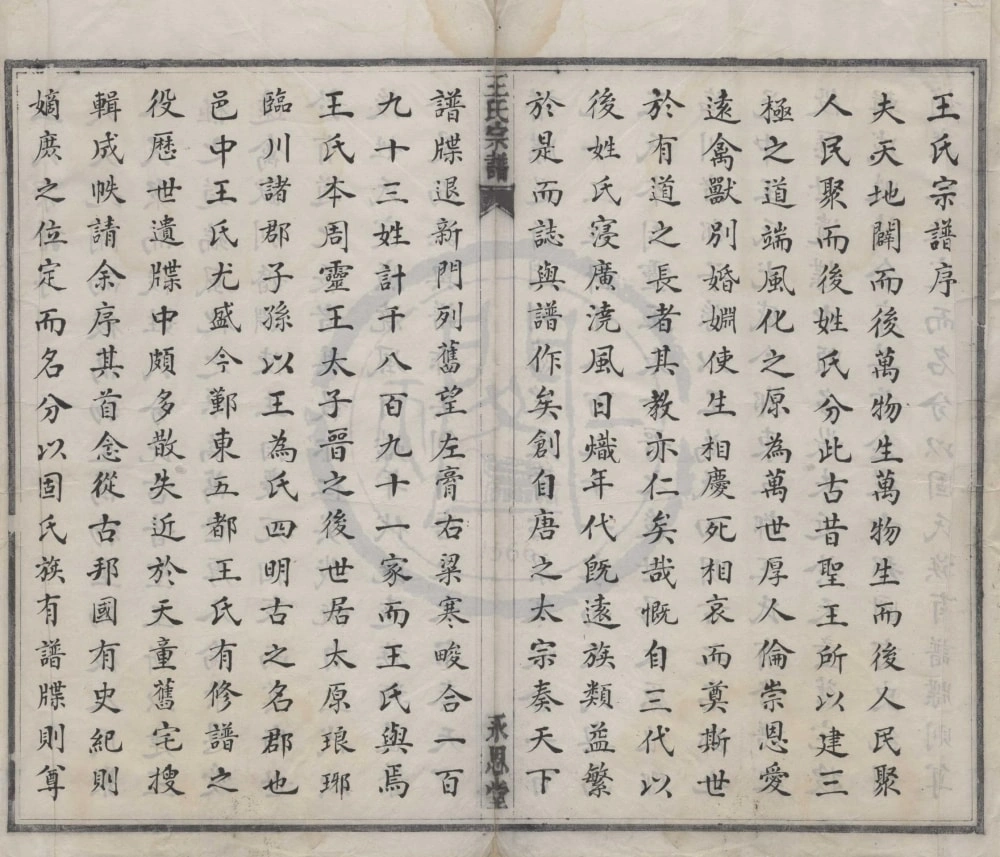 王氏宗譜序
夫天地闢而後萬物生萬物生而後人民聚
人民聚而後姓氏分此古昔聖王所以建三
極之道端風化之原為萬世厚人倫崇恩愛
遠禽獸別婚婣使生相慶死相哀而奠斯世
於有道之長者其教亦仁矣哉慨自三代以
後姓氏寖廣澆風日熾年代既遠族類益繁
於是而誌與譜作矣創自唐之太宗奏天下
王氏宗譜
永恩堂
譜牒退新門列舊望左膏右粱寒畯合二百
九十三姓計千八百九十一家而王氏與焉
王氏本周靈王太子晉之後世居太原琅琊
臨川諸郡子孫以王為氏四明古之名郡也
邑中王氏尤盛今鄞東五都王氏有修譜之
役歷世遺牒中頗多散失近於天童舊宅搜
輯成帙請余序其首念從古邦國有史紀則
嫡庶之位定而名分以固氏族有譜牒則尊